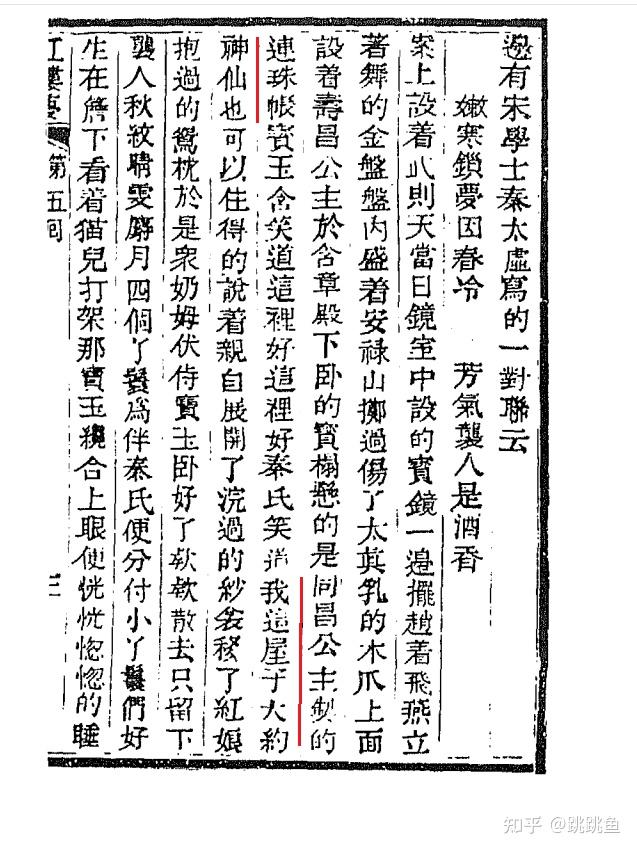 邉有宋學士秦太虛寫的一對聯云
嫩寒鎖夢因春冷　芳氣襲人是酒香
案上設着武則天當日鏡室中設的寳鏡一邉擺趙着飛燕立
著舞的金盤盤內盛着安祿山擲過傷了太真乳的木爪上面
設着壽昌公主於含章殿下卧的寳榻懸的是同昌公主製的
連珠帳寳玉含笑道這裡好這裡好秦氏笑道我這屋子大約
神仙也可以住得的說着親自展開了浣過的紗衾移了紅娘
抱過的鴛枕於是衆奶姆伏侍寳玉卧好了欵欵散去只留下
襲人秋紋晴雯麝月四個丫鬟爲伴秦氏便分付小丫鬟們好
生在簷下看着猫兒打架那寳玉纔合上眼便恍恍惚惚的睡
紅樓夢　第五回
知乎 @跳跳鱼